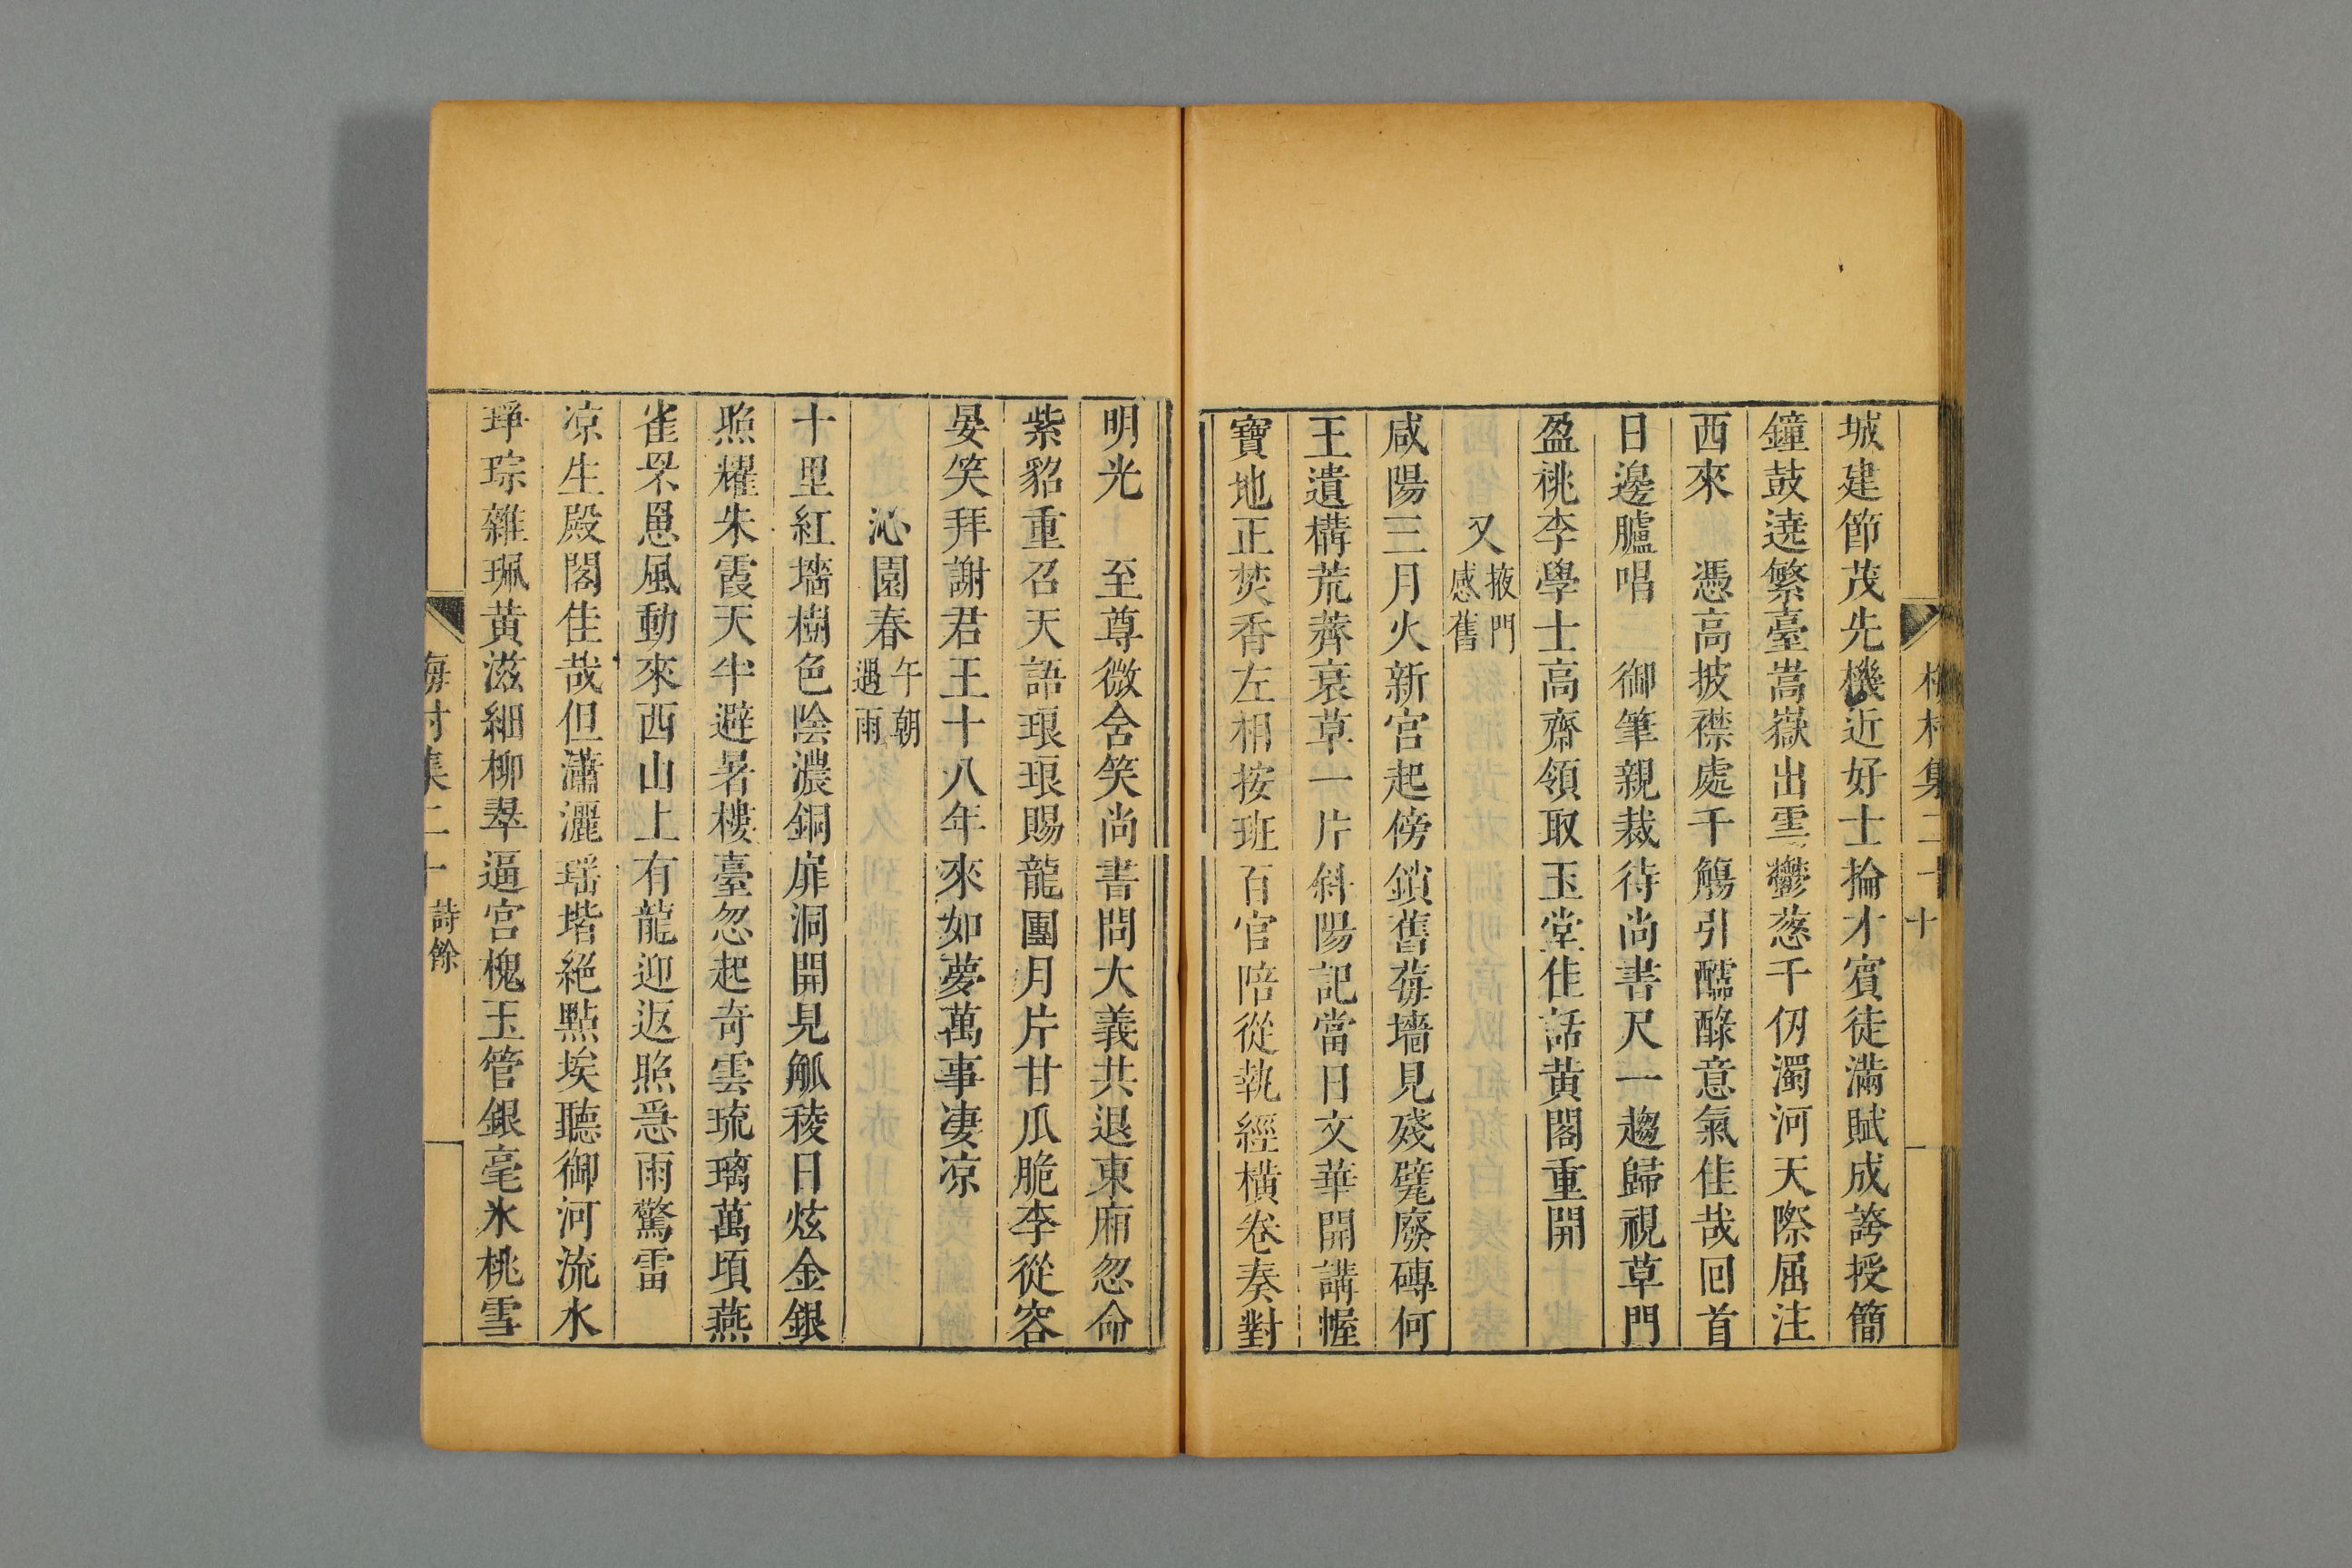 梅村集二十 十
城建節茂先機近好士掄才賓徒滿賦成誇授簡
鐘鼓遶繁臺嵩嶽出雲鬱葱千仞濁河天際屈注
西來 憑高披襟處千觴引醽醁意氣佳哉囘首
日邊臚唱 御筆親裁待尚書尺一趨歸視草門
盈桃李學士高齋領取玉堂佳話黄閣重開
又 掖門感舊
咸陽三月火新宫起傍鎖舊莓墻見殘甓廢磚何
王遺構荒薺衰草一片斜陽記當日文華開講幄
寶地正焚香左相按班百官陪從執經橫卷奏對
明光 至尊微含笑尚書問大義共退東廂忽命
紫貂重召天語琅琅賜龍團月片甘瓜脆李從容
晏笑拜謝君王十八年來如夢萬事凄凉
沁園春 午朝遇雨
十里紅墻樹色陰濃銅扉洞開見觚稜日炫金銀
照耀朱霞天半避暑樓臺忽起奇雲琉璃萬頃燕
雀罘罳風動來西山上有龍迎返照急雨驚雷
凉生殿閣佳哉但瀟灑瑶堦絕點埃聽御河流水
琤琮雜珮黄滋細柳翠逼宫槐玉管銀毫氷桃雪
梅村集二十 詩餘